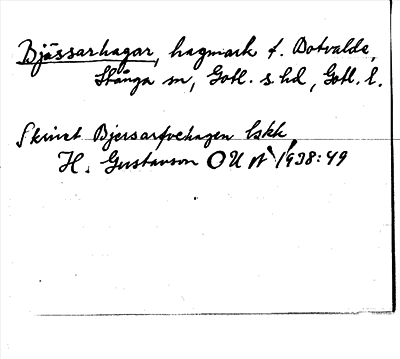 Bjässarhagar, hagmark t. Botvalde,
Stånga sn, Gotl. s. hd, Gotl. l.
Skrivet Bjersarfvehagen lskk
H. Gustavson OUÅ 1938:49